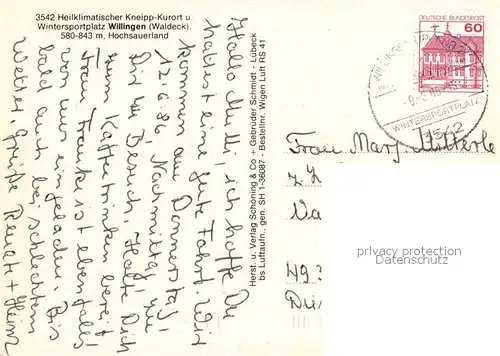 3542 Heilklimatischer Kneipp-Kurort u.
Wintersportplatz Willingen (Waldeck).
580-843 m, Hochsauerland
Hallo Mutti, ich hoffe Du
hattest eine gute Fahrt. Wir
kommen am Donnerstag,
12.6.86, Nachmittag, zu
Dir zu Besuch. Halte Dich
zum Kaffeetrinken bereit.
Frau Franke ist ebenfalls
von uns eingeladen. Bis
bald auch bei schlechtem
Wetter, Grüße Renate + Heinz
Herst. u. Verlag Schöning & Co + Gebrüder Schmidt - Lübeck
bs Luftaufn., gen. SH 1-36087 - Bestellnr. Wigen Luft RS 41
DEUTSCHE BUNDESPOST
60
WINTERSPORTPLATZ
3542
Frau Marg.
privacy protection
Datenschutz